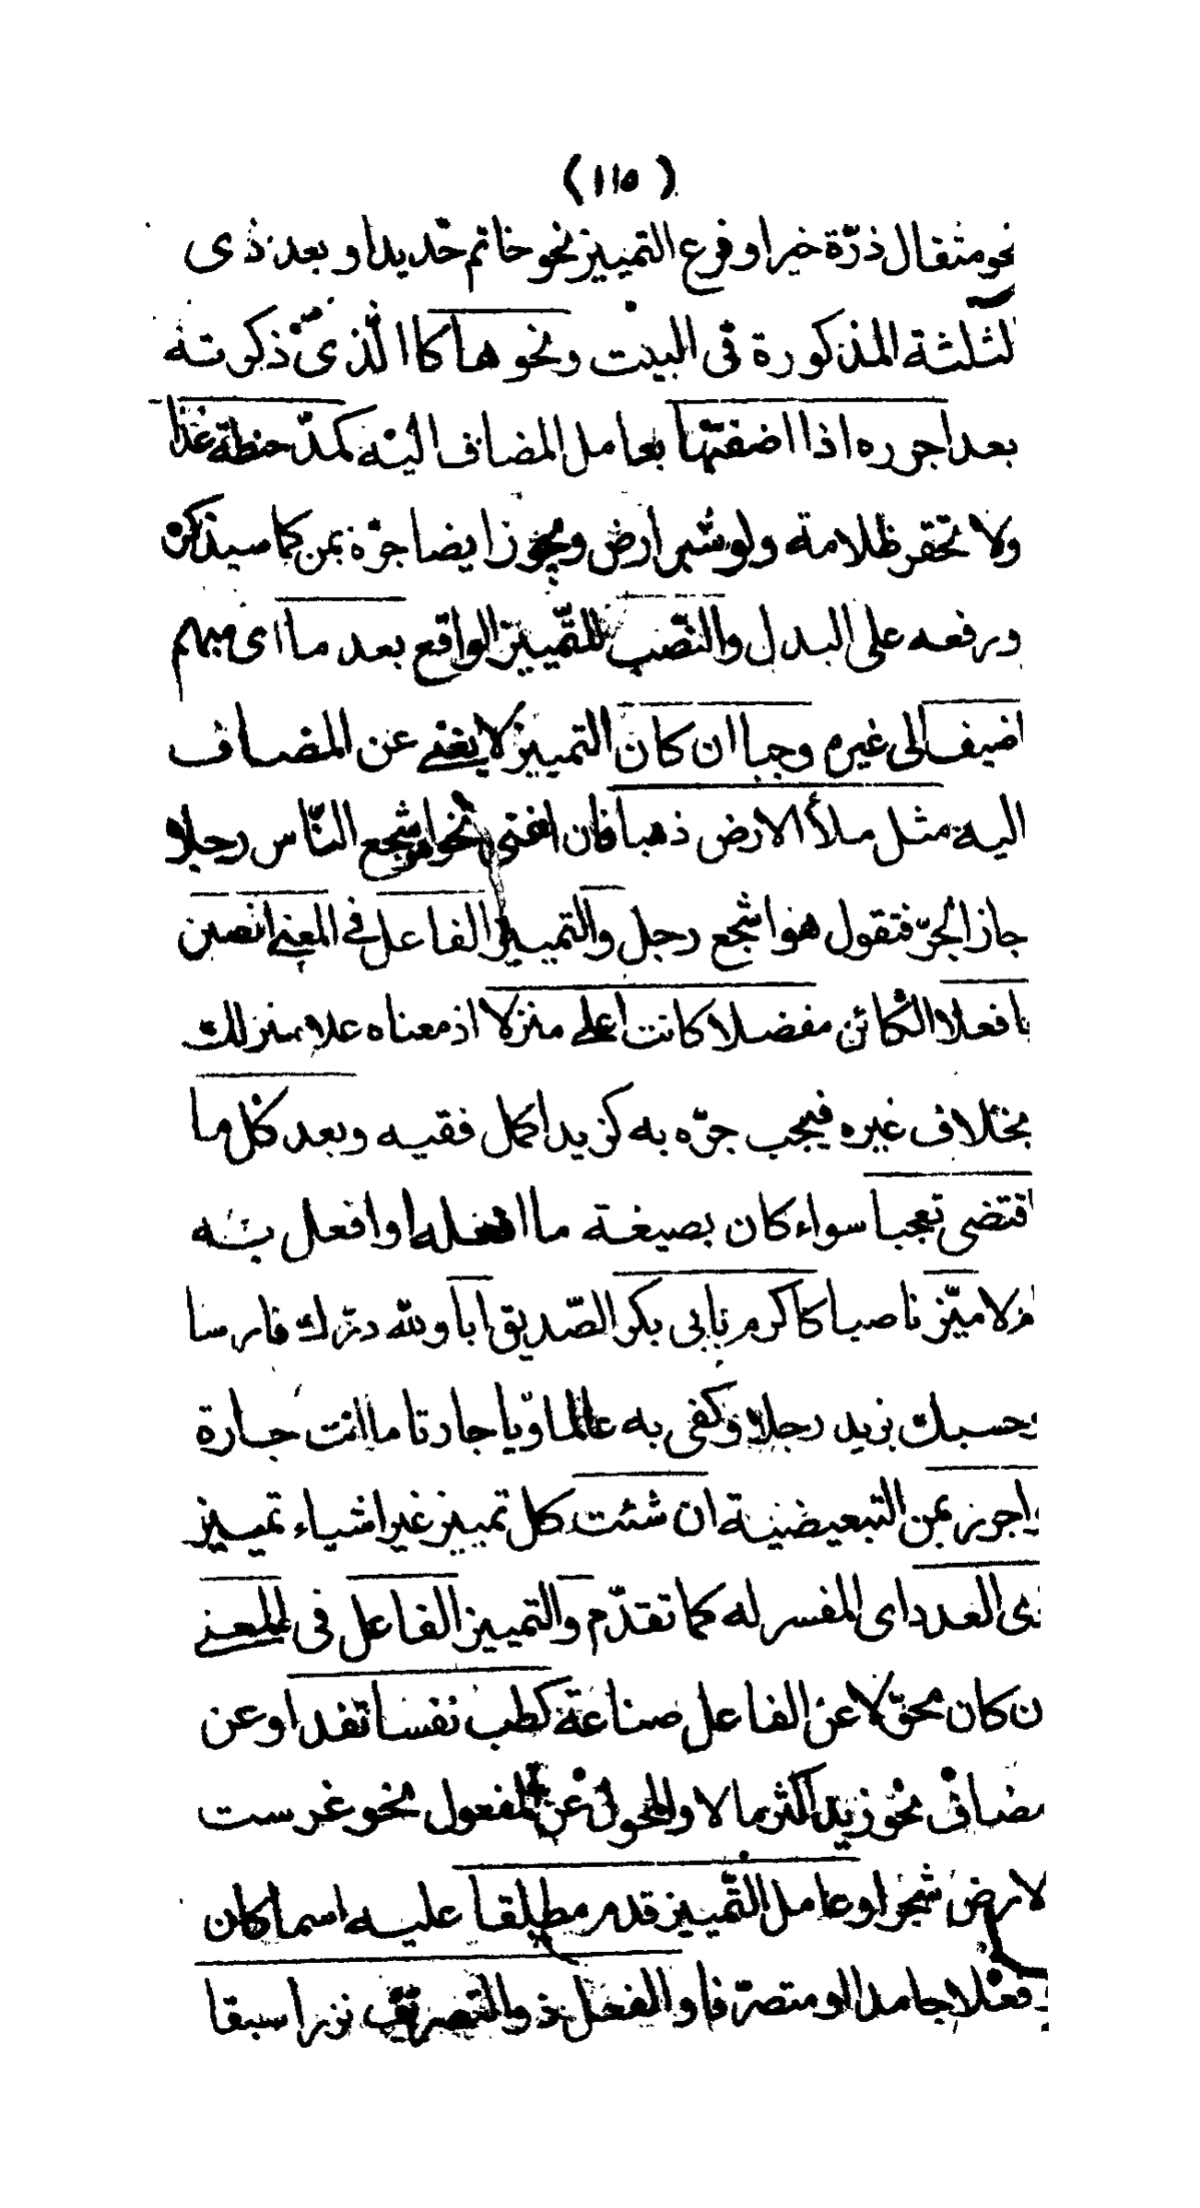 (١١٥)
نحو مثقال ذرّة خيرا وفرع التمييز نحو خاتم حديدا وبعد ذى
لثلثة المذكورة فى البيت ونحوها كا الّذى ذكرته
بعد اجرره اذا اضفتها بعامل المضاف اليه كمدّ حنطة غذا
ولا تحقر ظلامة ولو شبر ارض ويجوز ايضا جرّه بمن كما سيذكر
ورفعه على البدل والنّصب للتّمييز الواقع بعد ما اى مبهم
اضيف الى غيره وجبا ان كان التمييز لا يغنى عن المضاف
اليه مثل ملأ الارض ذهبا فان اغنى نحو هو اشجع النّاس رجلا
جاز الجرّ فتقول هو اشجع رجل والتمييز الفاعل فى المعنى انصبن
بافعلا الكائن مفضلا كانت اعلى منزلا اذ معناه علا منزلك
بخلاف غيره فيجب جرّه به كزيد اكمل فقيه وبعد كل ما
اقتضى تعجبا سواء كان بصيغة ما افعله او افعل به
ام لا ميّز ناصبا كاكرم بابى بكر الصّديق ابا ولله درّك فارسا
وحسبك بزيد رجلا وكفى به عالما ويا جارتا ما انت جارة
واجرر بمن التبعيضية ان شئت كل تمييز غير اشياء تمييز
ذى العدد اى المفسر له كما تقدّم والتمييز الفاعل فى المعنى
ن كان محوّلا عن الفاعل صناعة كطب نفسا تفد او عن
مضاف نحو زيد اكثر مالا والمحول عن المفعول نحو غرست
لارض شجرا وعامل التّمييز قدم مطلقا عليه اسما كان
و فعلا جامدا او متصرّفا والفعل ذو التصريف نزرا سبقا